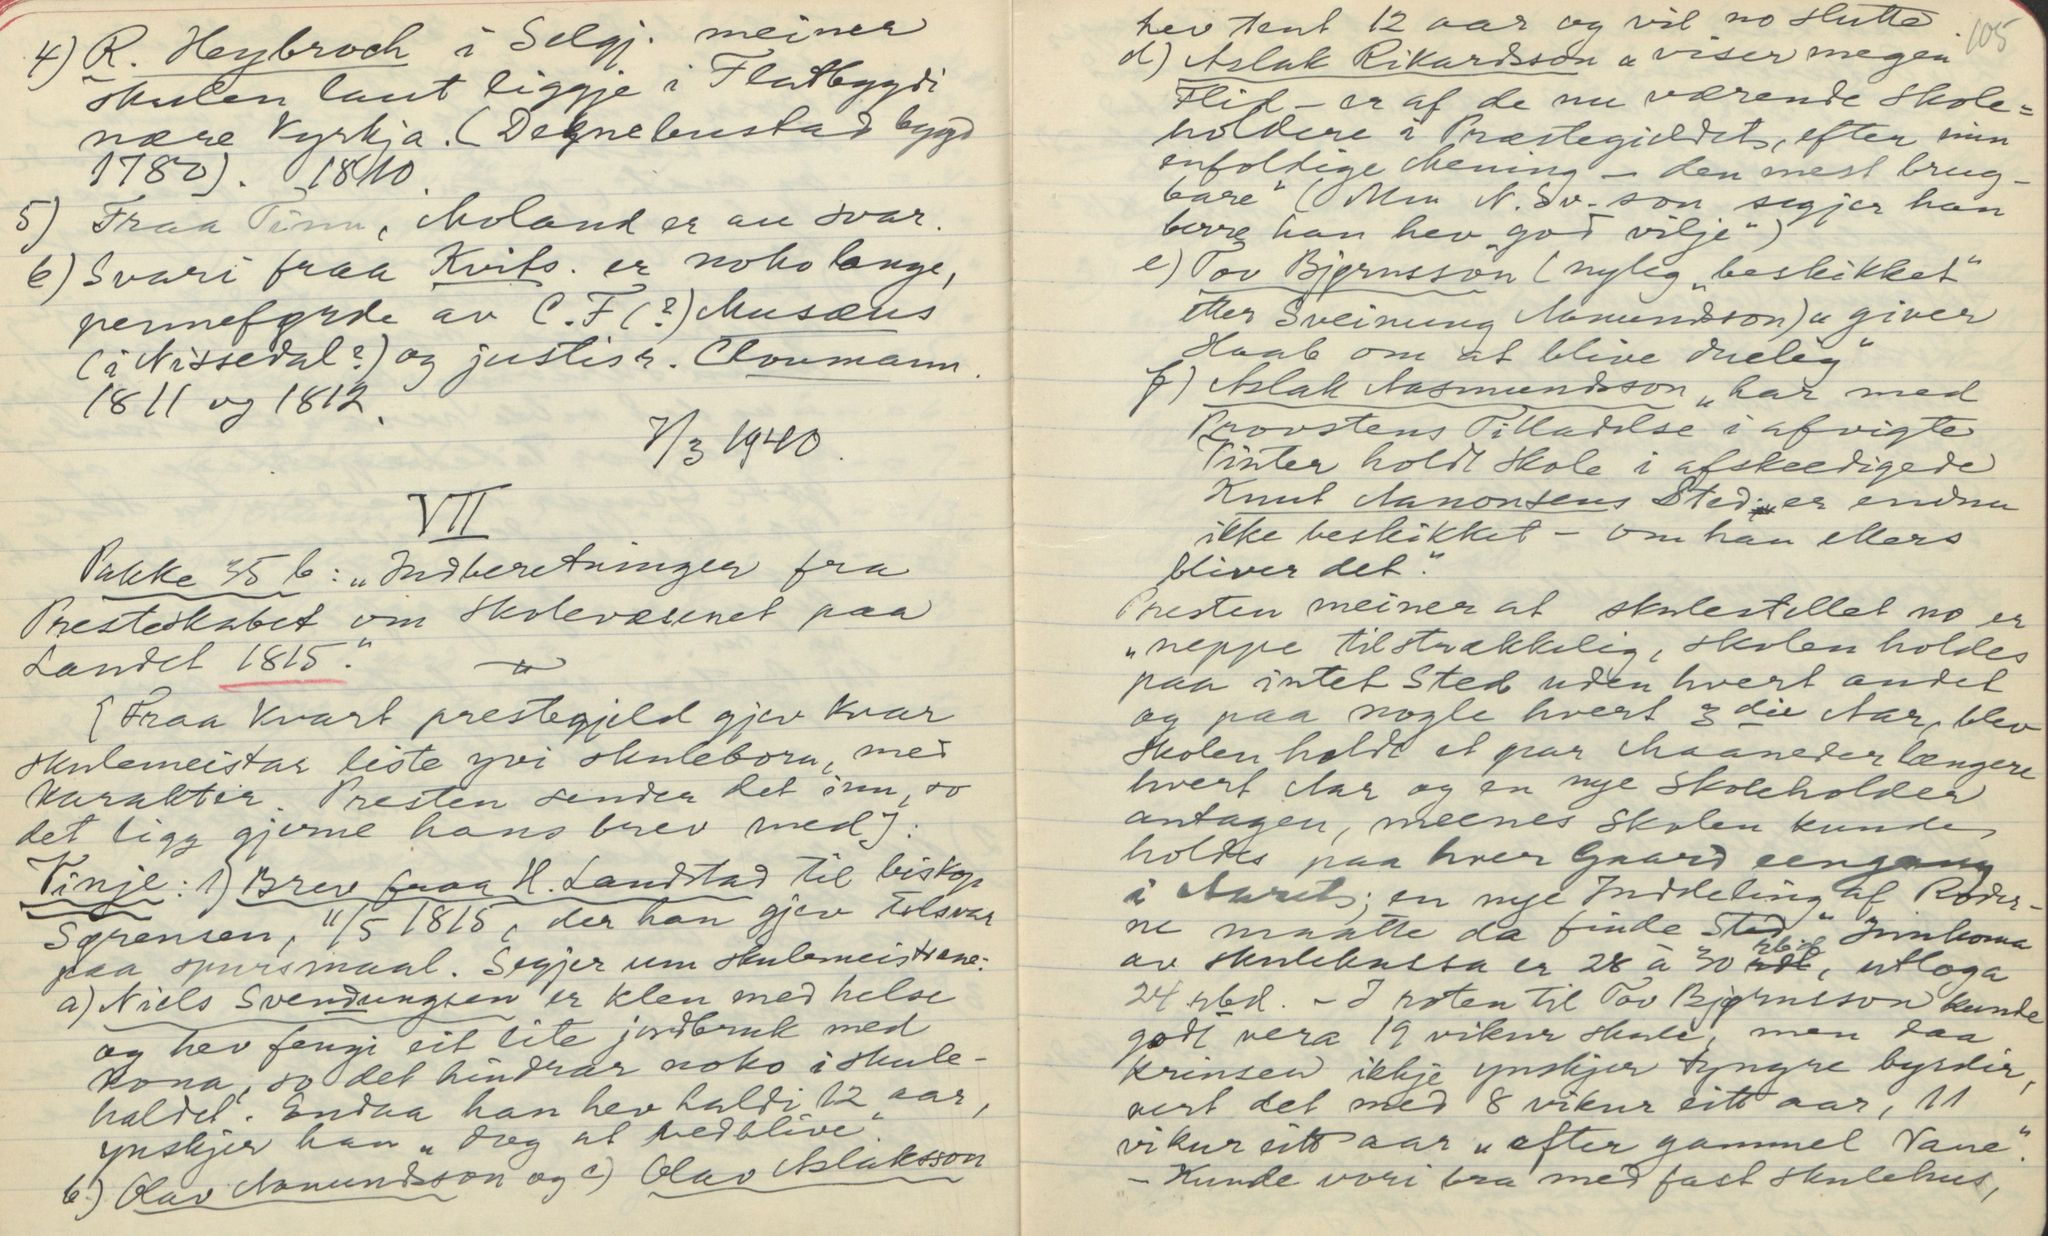 4) R. Heybroch i Selgj. meiner
skulen laut liggje i Flatbygdi
nære Kyrkja. (Degnebustad bygd
1780). 1810.
5) Fraa Tinn, Moland er au svar.
6) Svari fraa Kvits. er noko lange,
penneførde av C. F (?) Musæus
(i Nissedal?) og justisr. Cloumann.
1811 og 1812.
7/3 1940.
VII
Pakke 35 b: „Indberetninger fra
Presteskabet om Skolevæsenet paa
Landet 1815."
[Fraa kvart prestegjeld gjev kvar
skulemeistar liste yvi skuleborn, med
karakter. Presten sender det inn, so
det ligg gjerne hans brev med]:
Vinje: 1) Brev fraa H. Landstad til biskop
Sørensen, 11/5 1815, der han gjev tilsvar
paa spursmaal. Segjer um skulemeistrane:
a) Niels Svendungsen er klen med helse
og hev fengi eit lite jordbruk med
kona, so det hindrar noko i skule-
haldet. Endaa han hev haldi 12 aar,
ynskjer han „dog at vedblive".
b) Olav Aamundsson og c) Olav Aslaksson
105
hev tent 12 aar og vil no slutte
d) Aslak Rikardsson „viser megen
Flid – er af de nu værende Skole=
holdere i Præstegieldet, efter min
enfoldige Mening – den mest brug-
bare" (Um N. Sv.-son segjer han
berre han hev „god vilje")
e) Tov Bjørnsson (nyleg „beskikket"
etter Sveinung Aamundsson) „giver
Haab om at blive duelig"
f) Aslak Aasmundsson „har med
Provstens Tilladelse i afvigte
Vinter holdt Skole i afskeedigede
Knut Aanonsens Sted; er endnu
ikke beskikket – om han ellers
bliver det."
Presten meiner at skulestellet no er
„neppe tilstrækkelig, Skolen holdes
paa intet Sted uden hvert andet
og paa nogle hvert 3die Aar, blev
Skolen holdt et par Maaneder længere
hvert Aar og en nye Skoleholder
antagen, meenes Skolen kunde
holdes paa hver Gaard eengang
i Aaret; en nye Inddeling af Roder-
ne maatte da finde Sted" Innkoma
av skulekassa er 28 à 30 rbd, utloga
24 rbd. – I roten til Tov Bjørnsson kunde
godt vera 19 vikur skule, men daa
Krinsen ikkje ynskjer tyngre byrdir,
vert det med 8 vikur eitt aar, 11
vikur eitt aar „efter gammel Vane".
– Kunde vori bra med fast skulehus,